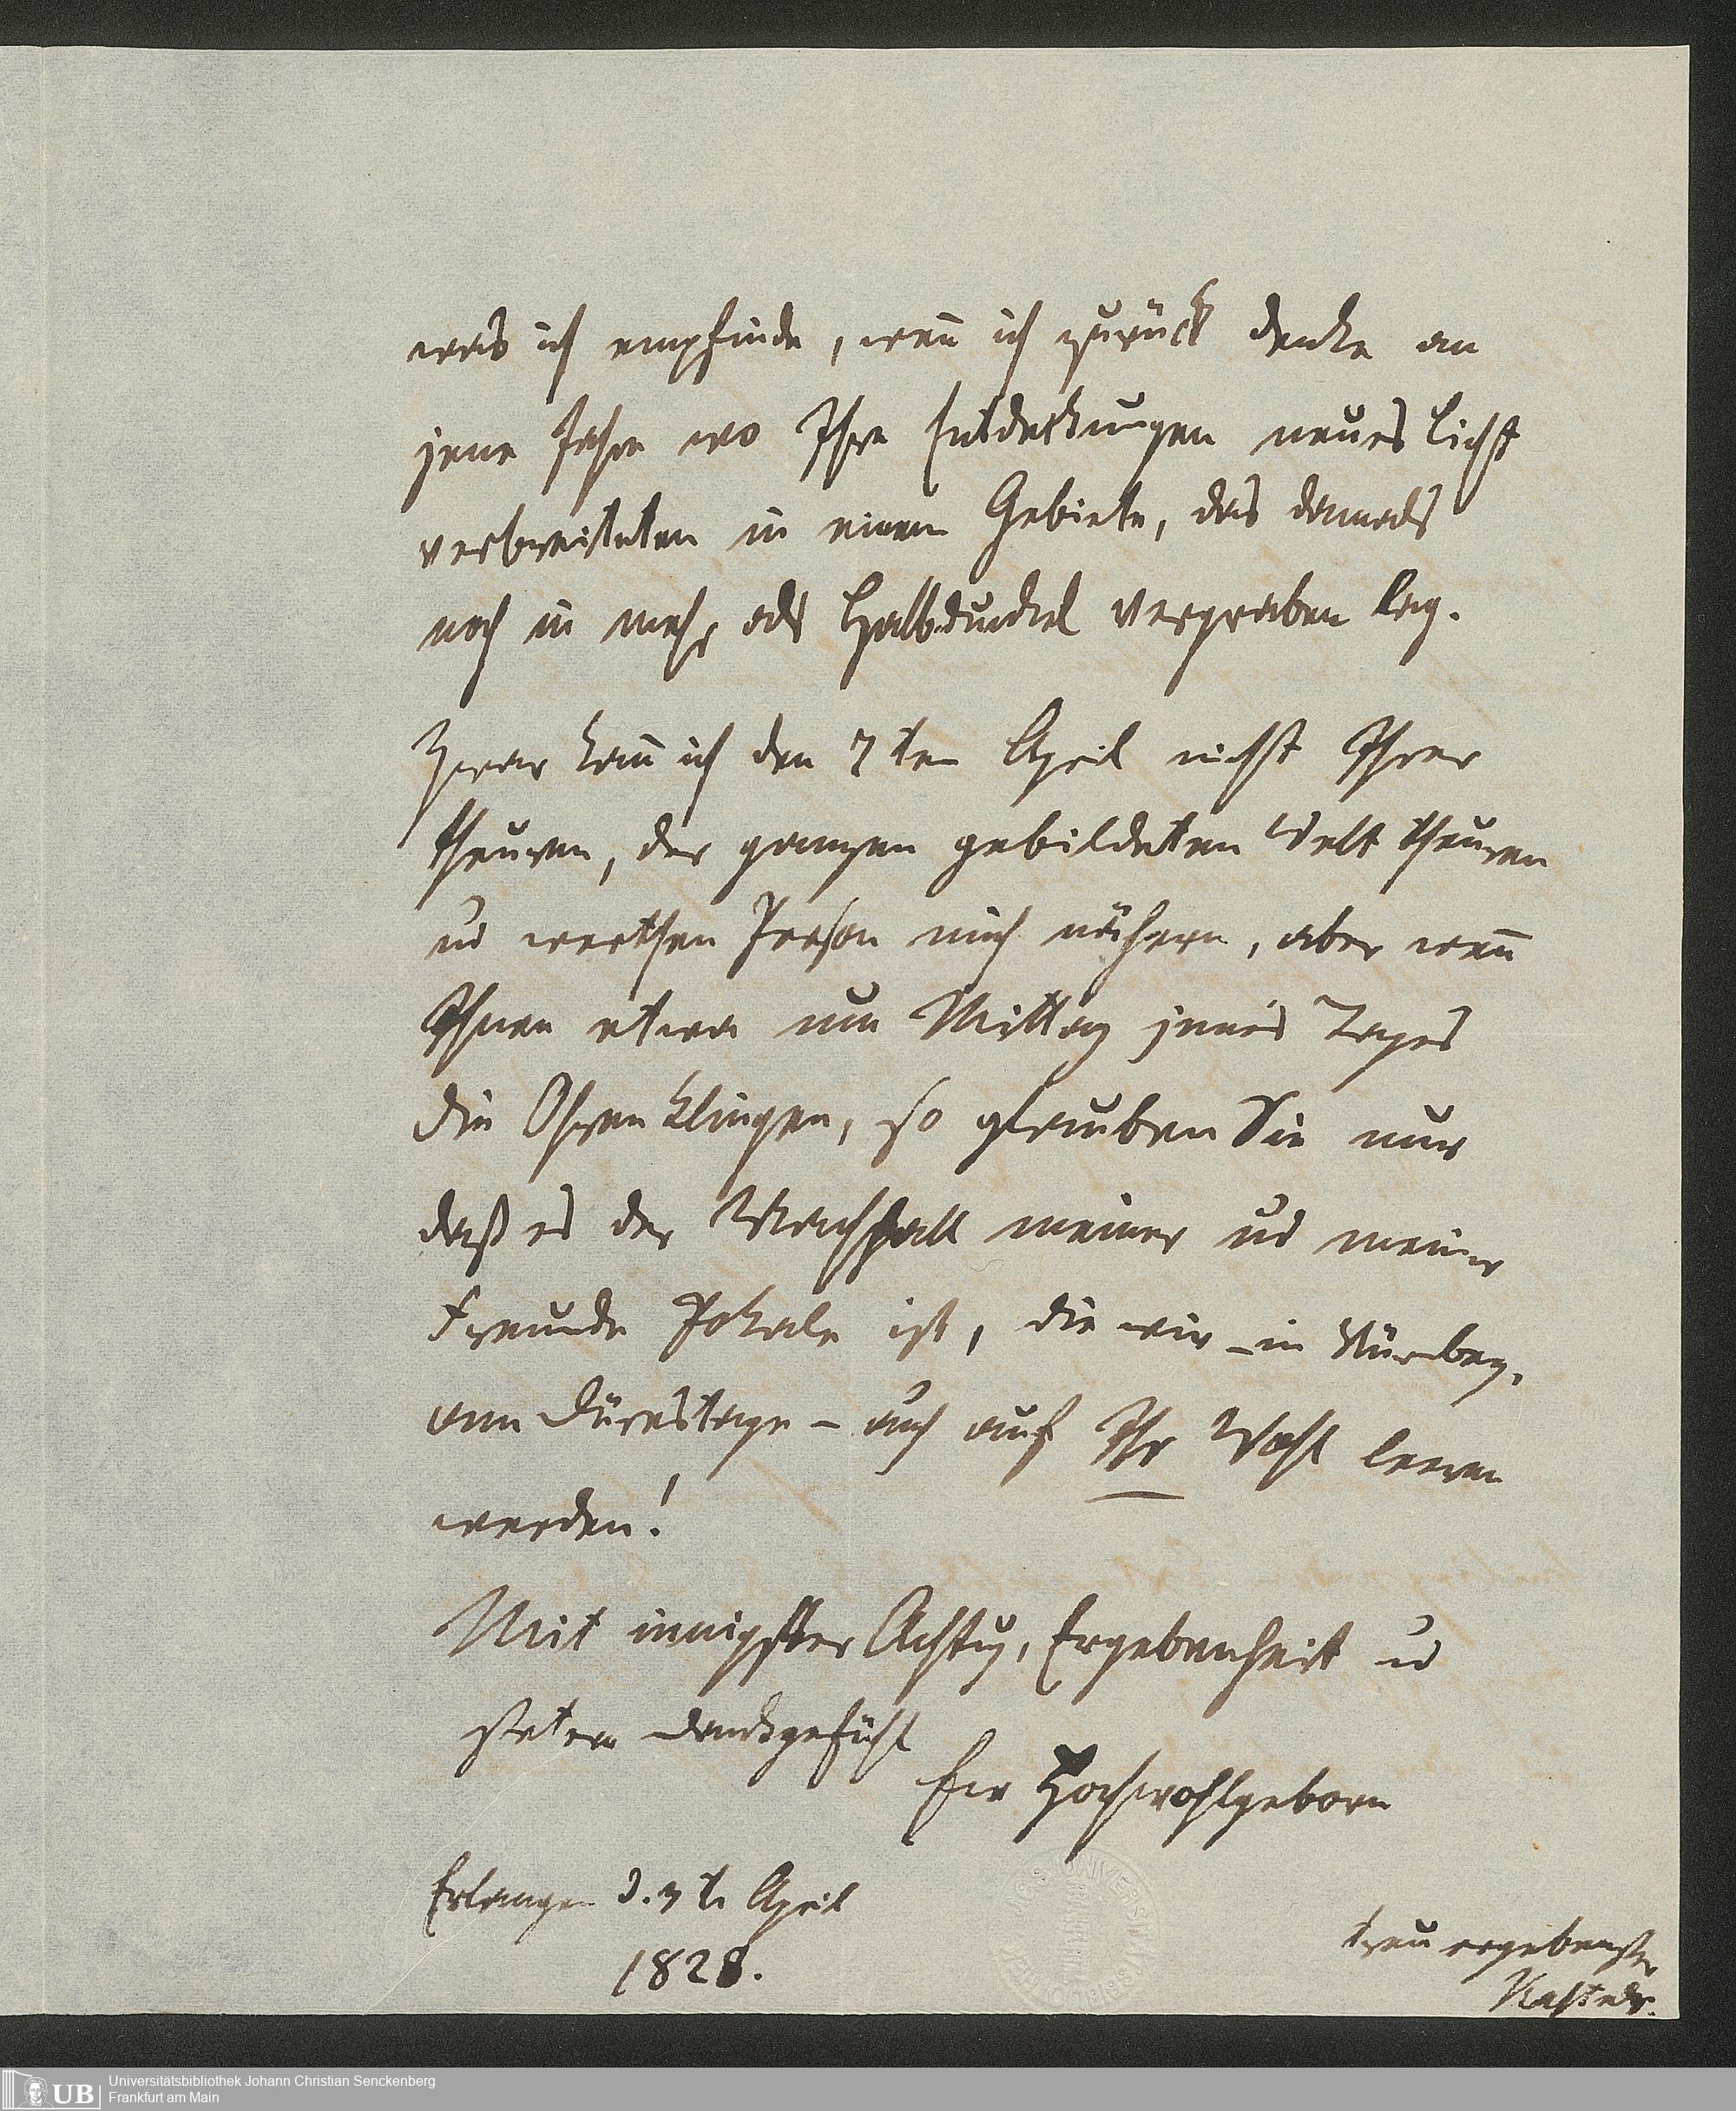 was ich empfinde, wen̄ ich zurück denke an
jene Jahre wo Ihre Entdeckungen neues Licht
verbreiteten in einem Gebiete, das damals
noch in mehr als Halbdunkel vergraben lag.
Zwar kan̄ ich den 7ten April nicht Ihrer
theuren, der ganzen gebildeten Welt theuren
und werthen Person mich nähern, aber wen̄
Ihnen etwa um Mittag jenes Tages
die Ohren klingen, so glauben Sie nur
daß es der Nachhall meiner und meiner
Freunde Pokale ist, die wir – in Nürnberg,
am Dürerstage – auch auf Ihr Wohl leeren
werden!
Mit innigster Achtung, Ergebenheit und
stetem Dankgefühl
Ew Hochwohlgeborn
Erlangen d. 3 t. April
1828.
treu ergebenster
Kastner.
Universitätsbibliothek Johann Christian Senckenberg
UB Frankfurt am Main